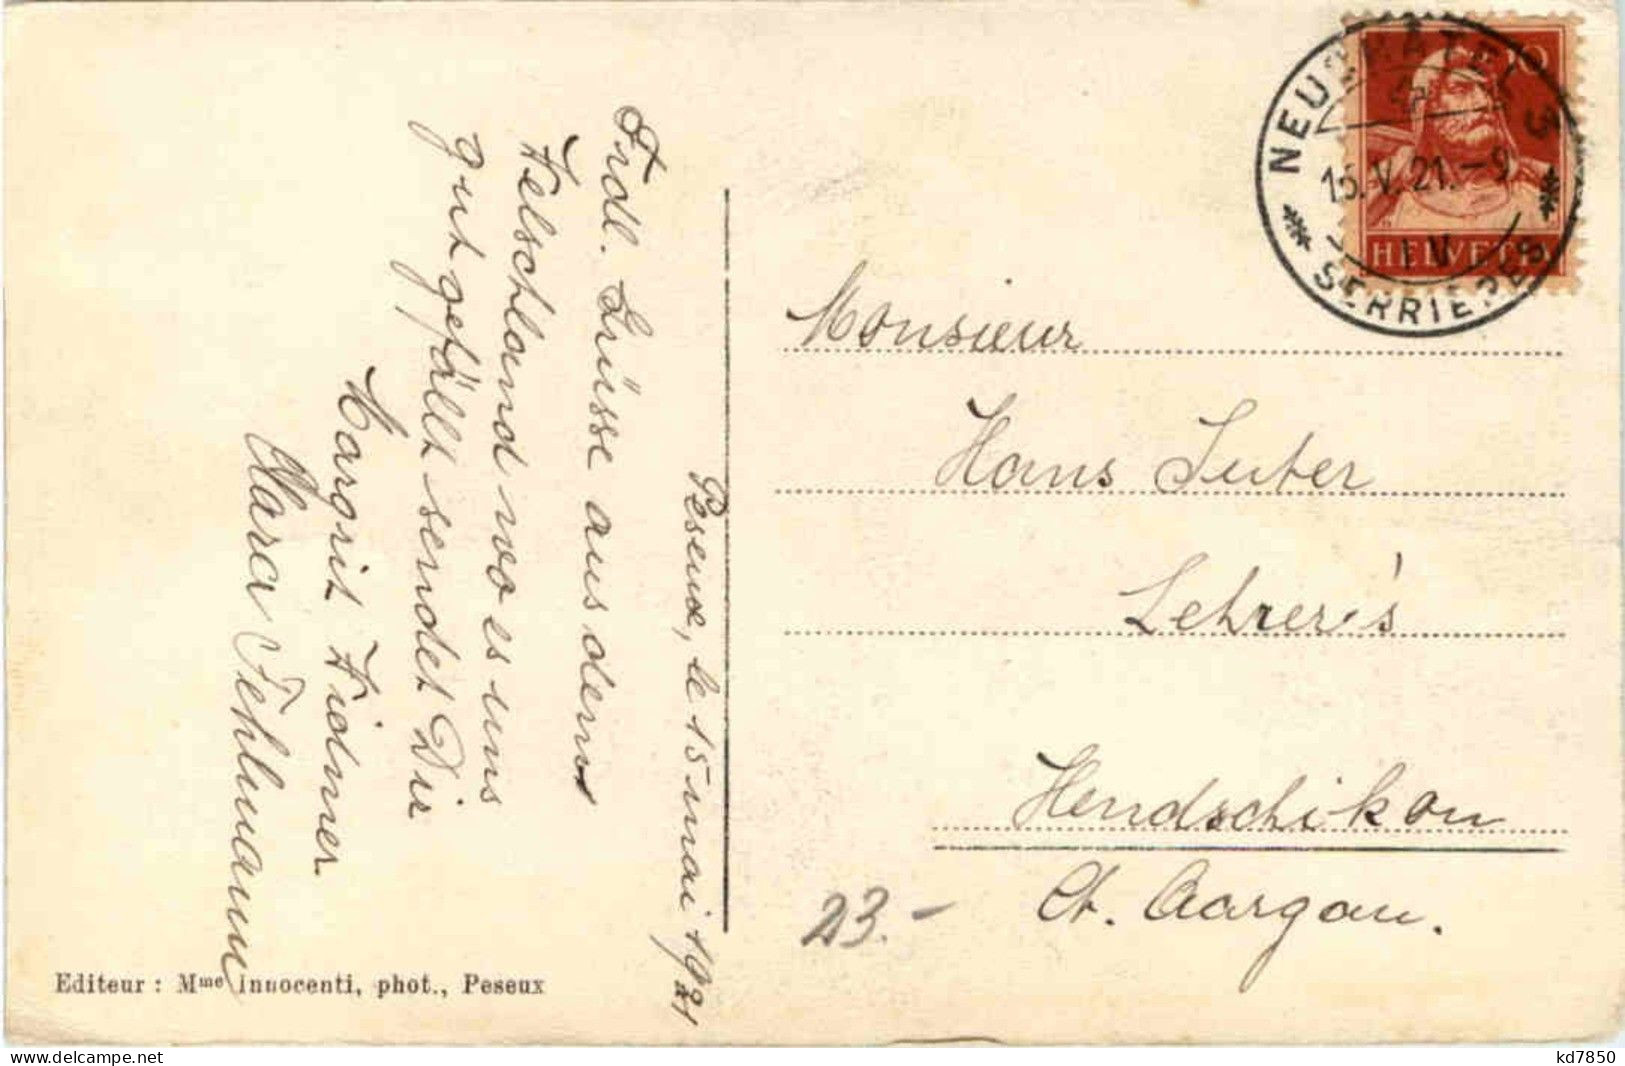 Peseux, le 15 mai 1921
Frdl. Grüsse aus dem
Welschland wo es uns
gut gefällt sendet Dir
Margrit Widmer
Klara Fehlmann
Editeur : Mme Innocenti, phot., Peseux
NEUCHÂTEL 3
15.V.21.-9
IV
SERRIÈRES
10
HELVETIA
Monsieur
Hans Suter
Lehrer's
Hendschikon
Ct. Aargau.
23.-
www.delcampe.net
kd7850